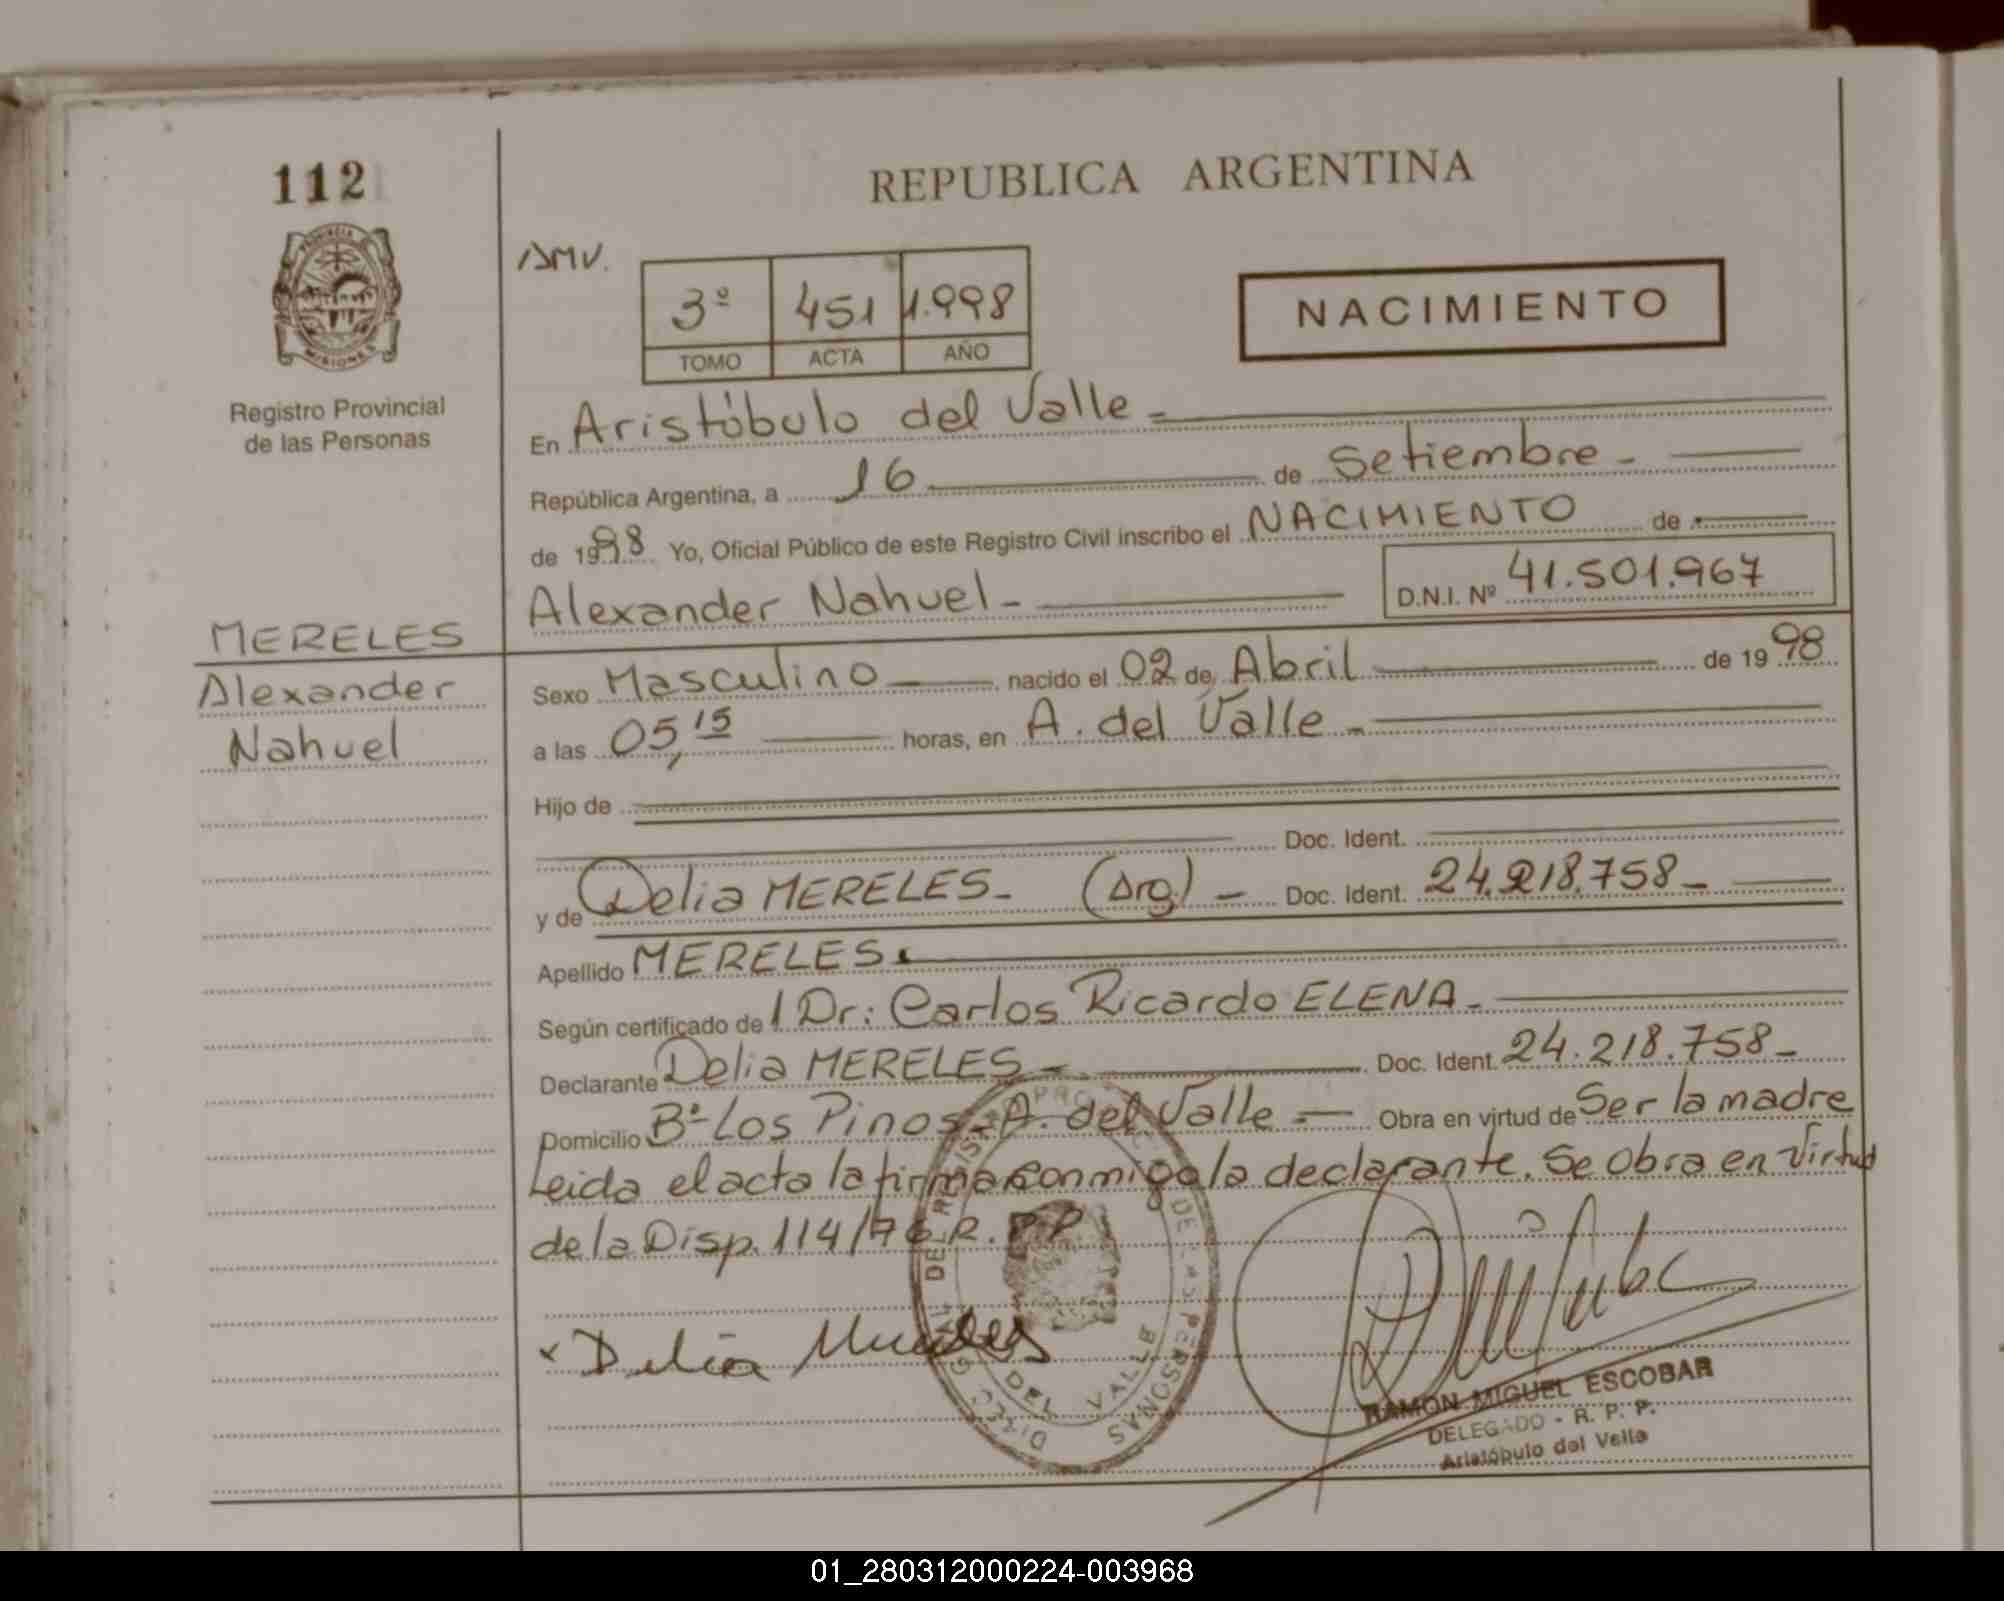 112
REPUBLICA ARGENTINA
PROVINCIA
MISIONES
Registro Provincial
de las Personas
3º 451 1.998
TOMO ACTA AÑO
NACIMIENTO
En Aristóbulo del Valle -
República Argentina, a 16 de Setiembre -
de 1998 Yo, Oficial Público de este Registro Civil inscribo el NACIMIENTO de
Alexander Nahuel - D.N.I. Nº 41.501.967
MERELES
Alexander
Nahuel
Sexo Masculino nacido el 02 de Abril de 1998
a las 05,15 horas, en A. del Valle -
Hijo de
Doc. Ident.
y de Delia MERELES - (Arg.) - Doc. Ident. 24.218.758 -
Apellido MERELES.
Según certificado de l Dr: Carlos Ricardo ELENA -
Declarante Delia MERELES - Doc. Ident. 24.218.758 -
Domicilio Bº Los Pinos - A. del Valle = Obra en virtud de Ser la madre
Leida el acta la firma conmigo la declarante. Se Obra en Virtud
de la Disp. 114/76 R.P.P
x Delia Mereles
DEL VALLE
DE LAS PERSONAS
RAMON MIGUEL ESCOBAR
DELEGADO - R. P. P.
Aristóbulo del Valle
01_280312000224-003968